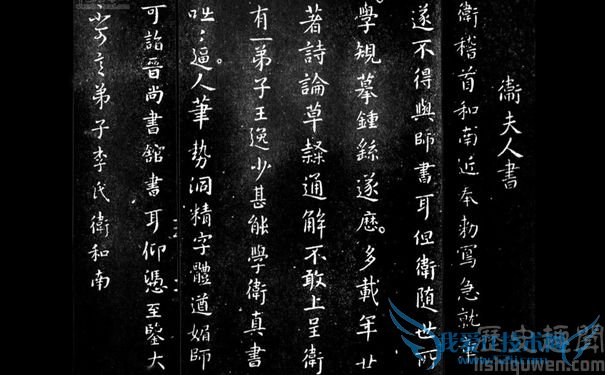 衛夫人書
衛稽首和南近奉勅寫急就章
遂不得與師書耳但衛隨世所
學規摹鍾繇遂歷。多載年廿
著詩論草隸通解不敢上呈衛
有一弟子王逸少甚能學衛真書
咄〻逼。人筆勢洞精字體遒媚師
可詣晉尚書舘書耳仰憑至鑒大
不可言弟子李氏衛和南
歷史趣聞
lishiquwen.com